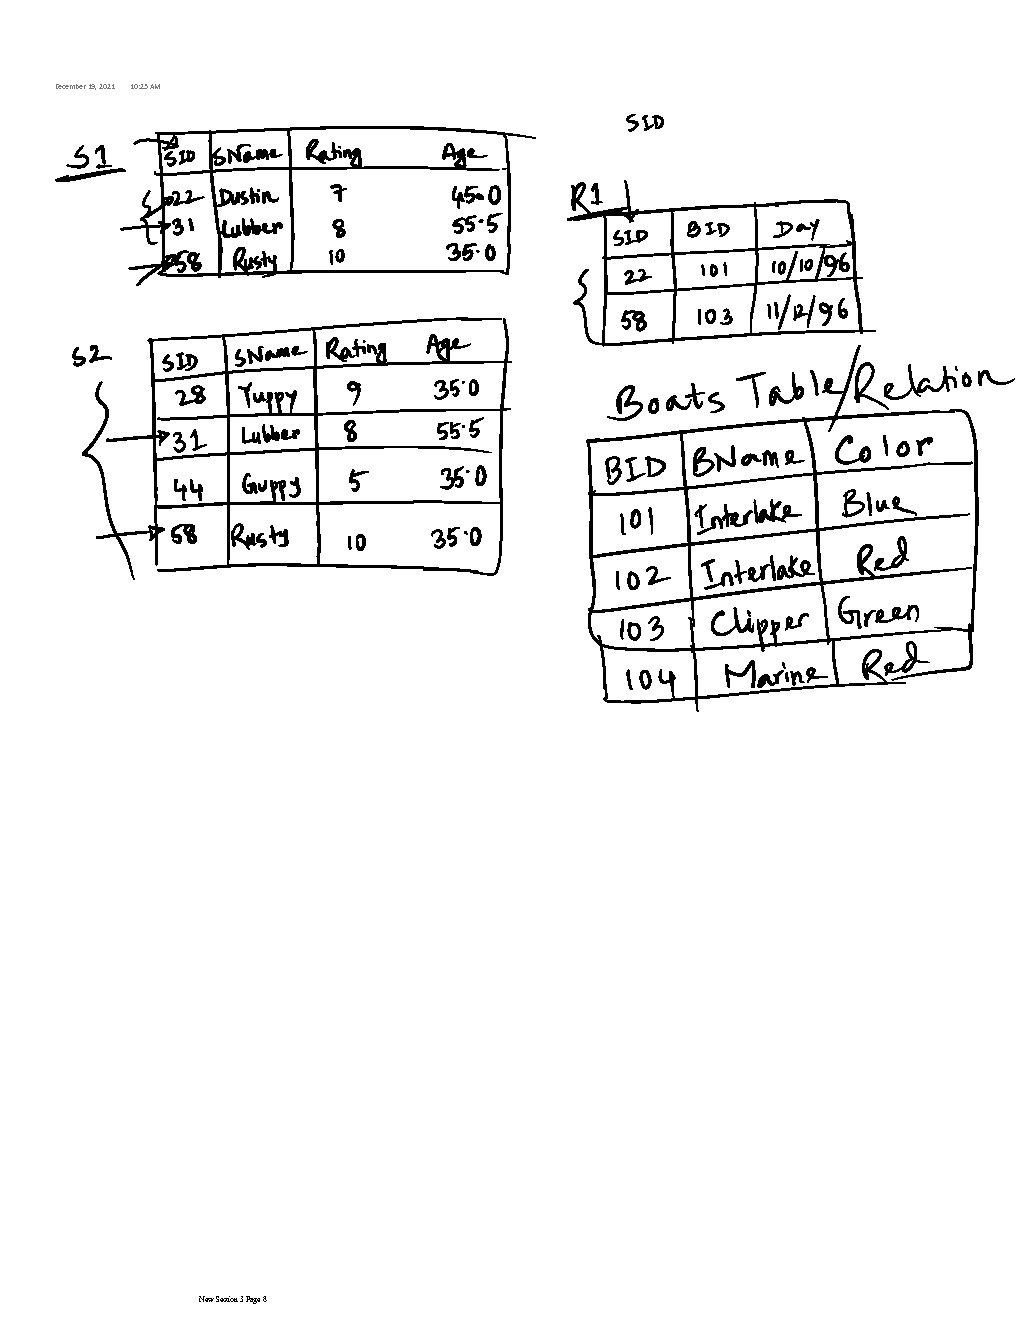 December 19, 2021 10:25 AM
S1
SID SName Rating Age
22 Dustin 7 45.0
31 Lubber 8 55.5
58 Rusty 10 35.0
S2
SID SName Rating Age
28 Yuppy 9 35.0
31 Lubber 8 55.5
44 Guppy 5 35.0
58 Rusty 10 35.0
SID
R1
SID BID Day
22 101 10/10/96
58 103 11/12/96
Boats Table/Relation
BID BName Color
101 Interlake Blue
102 Interlake Red
103 Clipper Green
104 Marine Red
New Section 3 Page 8